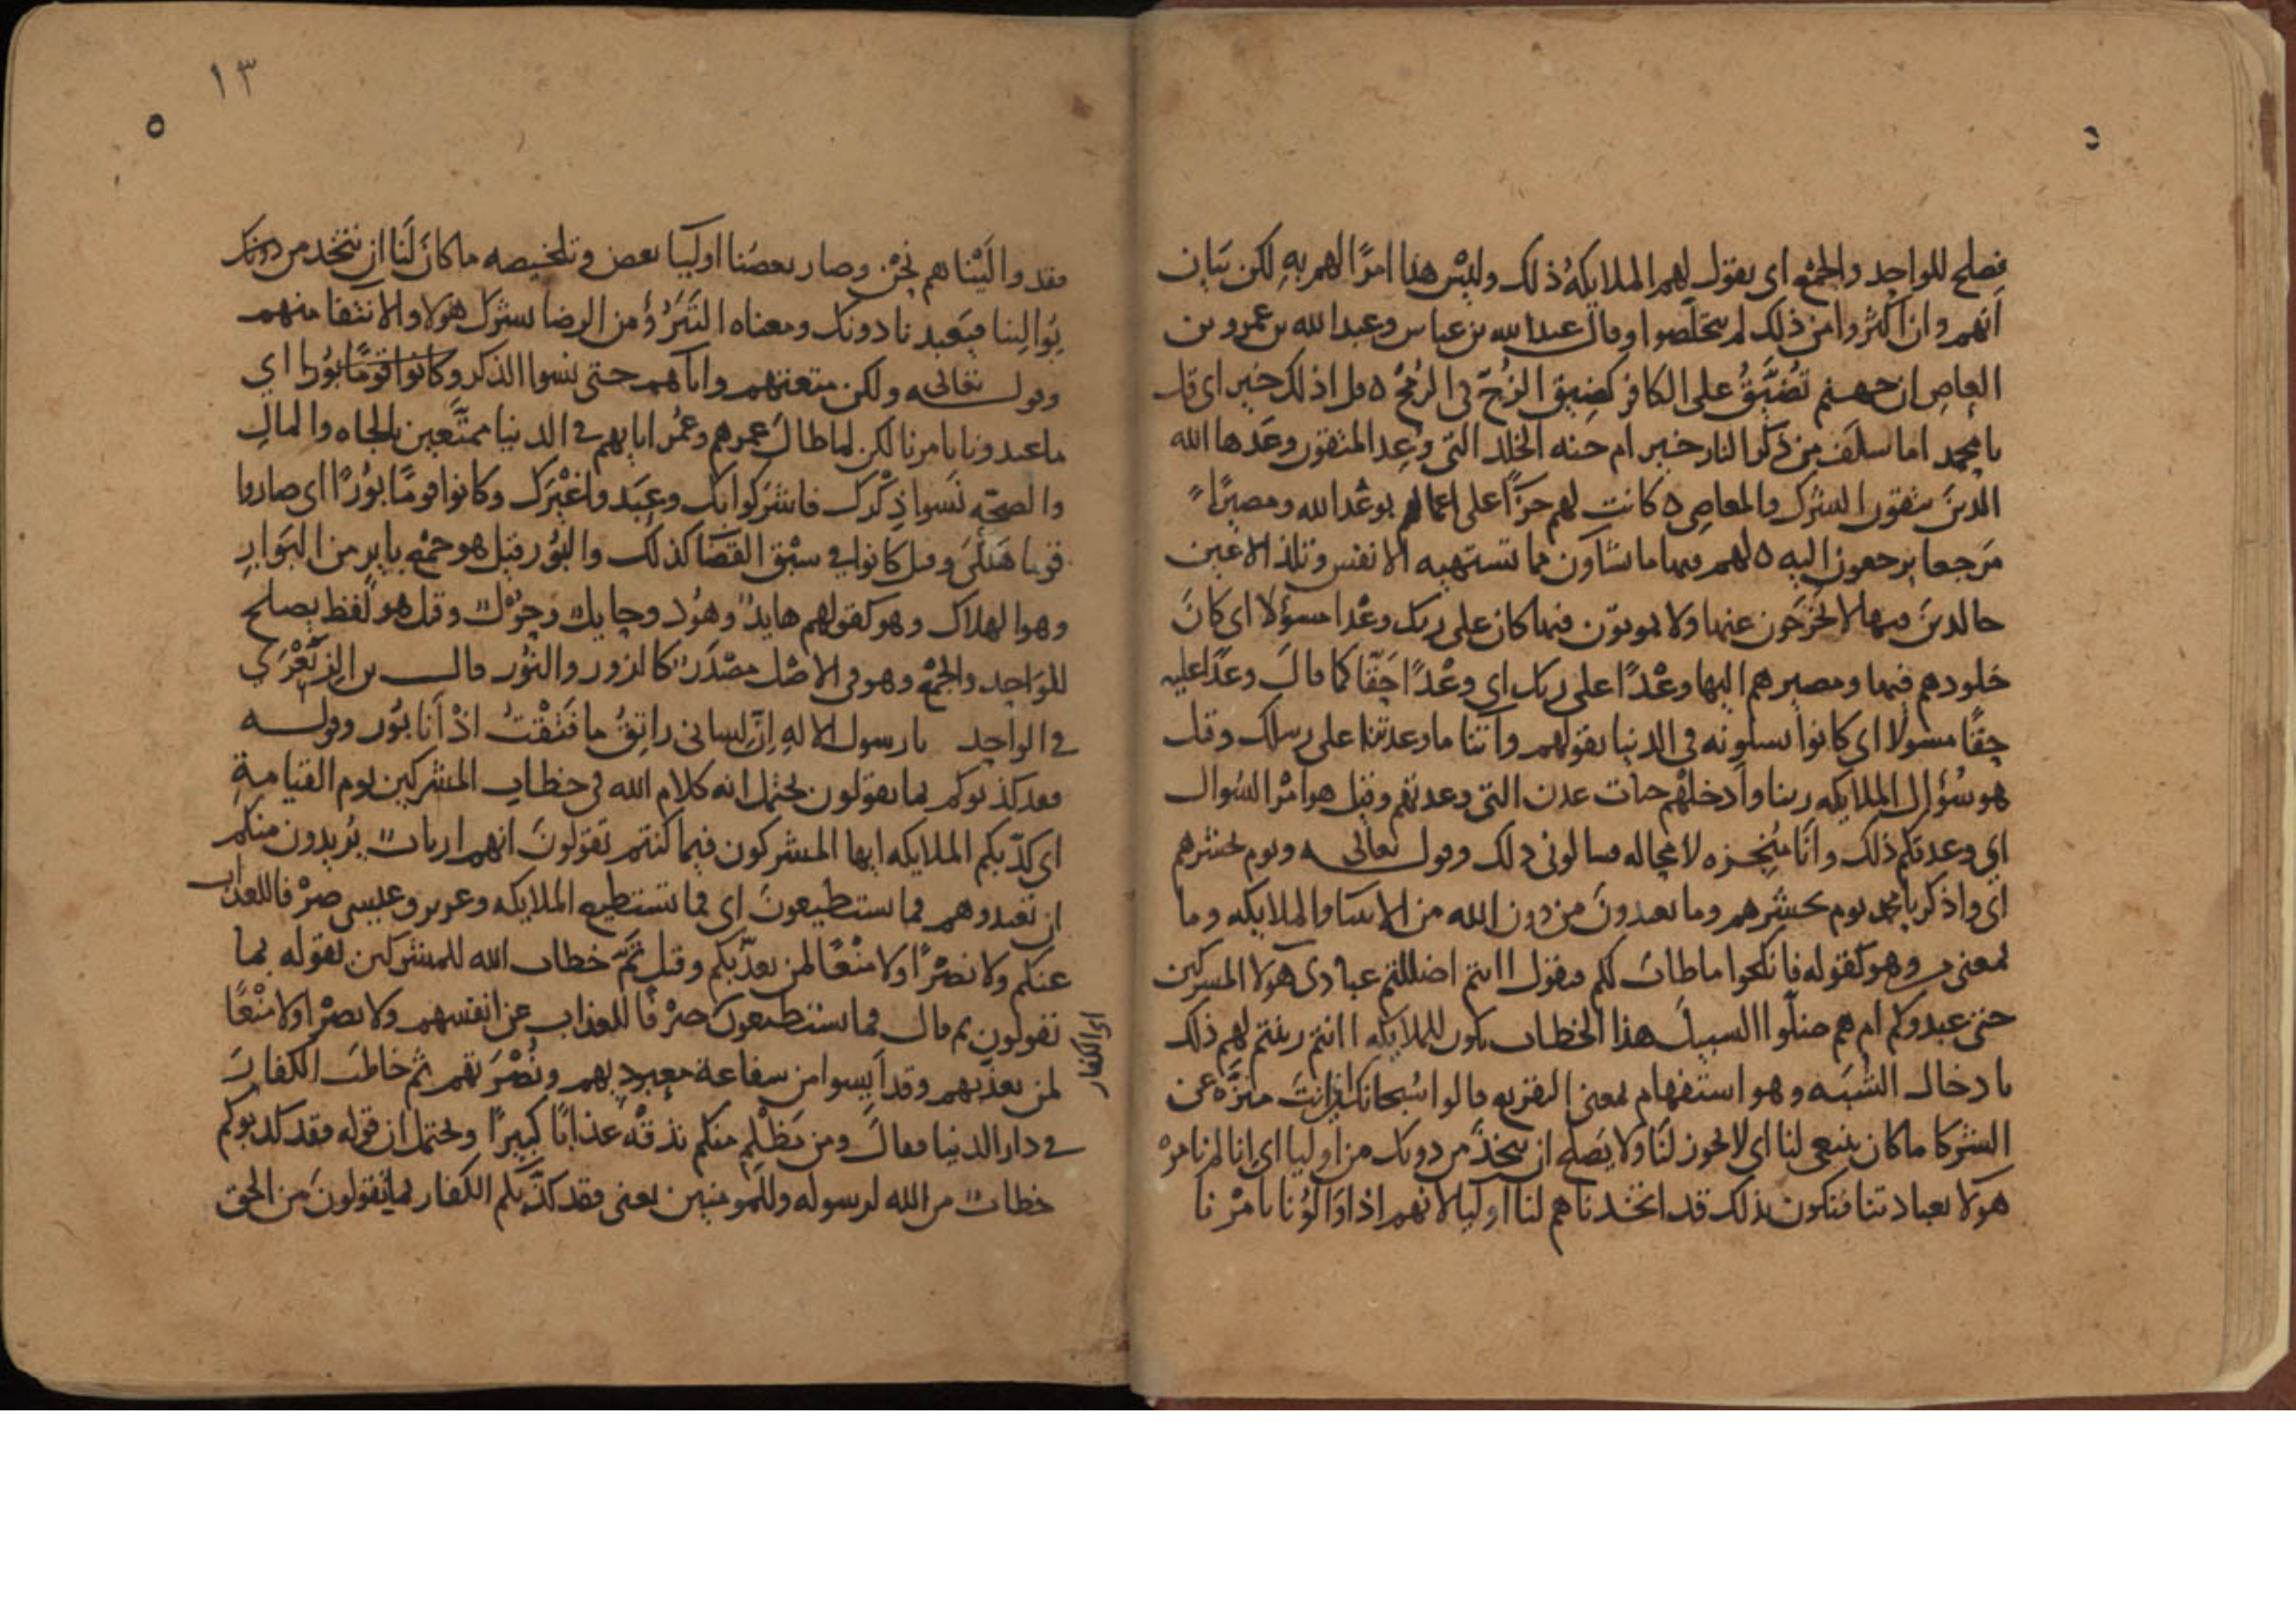 فيصلح للواحد والجمع اى يقول لهم الملايكة ذلك وليس هذا امرًا لهم به لكن بيان
انهم وان اكثروا من ذلك لم يتخلصوا وقال عبد الله بن عباس وعبد الله بن عمرو بن
العاص ان جهنم تُضَيَّقُ على الكافر كضيق الزُجّ فى الرُمْح ه قل اذلك خير اى قل
يا محمد اما سلف من ذكر النار خير ام جنة الخلد التى وُعِد المتقون وعدها الله
الذين يتقون الشرك والمعاصى ه كانت لهم جزآءً على اعمالهم بوَعْد الله ومصيرًا
مرجعا يرجعون اليه ه لهم فيها ما يشاون مما تشتهيه الانفس وتلذ الاعين
خالدين فيها لا يُخْرَجون عنها ولا يموتون فيها كان على ربك وعْدا مسؤلا اى كانَ
خلودهم فيها ومصيرهم اليها وعْدًا على ربك اى وعْدًا حَقّا كما قال وعدًا عليه
حقًا مسولا اى كانوا يسلونه فى الدنيا بقولهم وآتنا ما وعدتنا على رسلك وقيل
هو سُؤال الملايكه ربنا وأدخلْهم جنات عدن التى وعدتهم وقيل هو امْر السُوال
اى وعدتكم ذلك وانا مُنْجِزه لا محاله فسالونى ذلك وقوله تعالى ويوم يحشرهم
اى واذكر يا محمد يوم يحشرهم وما يعبدونَ من دون الله من الانبيا والملايكه وما
بمعنى من وهو كقوله فانكحوا ما طاب لكم فيقول اانتم اضللتم عبادى هؤلا المشركين
حتى عبدوكم ام هم ضلّوا السبيل هذا الخطاب يكون للملايكه اانتم زينتم لهم ذلك
بادخال الشبَه وهو استفهام بمعنى التقريع قالوا سُبحانك اى انتَ منزَّه عن
الشركا ما كان ينبغى لنا اى لا يجوز لنَا ولا يَصلح ان نتخذ من دونك من اوليا اى انا لم نامرْ
هولا بعبادتنا فنكون بذلك قد اتخذناهم لنا اوليا لانهم اذا وَالَوْنا بامْرنا
فقد والَيْناهم نحْن وصار بعضُنا اوليا بعض وتلخيصه ما كانَ لَنا ان نتخذ من دونك
يُوالينا فيَعبدنا دونك ومعناه التَبَرُّؤ من الرضا بشرك هولا والانتفا منهم
وقولــه تعالى ولكن متعتهم واباهم حتى نسوا الذكر وكانوا قومًا بُورا اي
ما عبدونا بامرنا لكن لما طال عمرهم وعُمُر ابايهم فى الدنيا ممتَّعين بالجاه والمال
والصحّه نَسوا ذِكْرك فاشرَكوا بك وعبَدوا غَيْرَك وكانوا قومًا بُوْرًا اى صاروا
قوما هَلْكَى وقيل كانوا فى سبْق القَضَا كذلك والبُوْر قيل هو جمْع باير من البَوار
وهو الهلاك وهو كقولهم هايد وهُوْد وحايل وحُوْل وقيل هو لفظ يصلح
للواحد والجمْع وهو فى الاصْل مصْدَر كالزور والنُوْر قال بن الزِبَعْرَي
فى الواحد يا رسول الالهِ اِنّ لسانى راتِقُ ما فَتَقْتُ اذْ أنا بُور وقوله
فقد كذبوكم بما يقولون يحتمل انه كلام الله فى خطاب المشركين يوم القيامةِ
اى كذّبكم الملايكه ايها المشركون فيما كنتم تقولونَ انهم ارباب يُريدون منكم
ان تعبدوهم فما يستطيعونَ اى فما تستطيع الملايكه وعزير وعيسى صرْفا للعذاب
عنكم ولا نصْرًا ولا منْعًا لمن يعذّبكم وقيل تَمّ خطاب الله للمشركين بقوله بما
تقولون ثم قال فما يستطيعون صرْفًا للعذاب عن انفسهم ولا نصْرا ولا منْعًا
اى الكفار
لمن يعذبهم وقد أيسوا من شفاعة معبوديهم ونُصْرَتهم ثم خاطب الكفار
فى دار الدنيا فقالَ ومن يَظْلِم منكم نذقْه عذابًا كبيرًا ويحتمل ان قوله فقد كذبوكم
خطاب من الله لرسوله وللمومنين يعنى فقد كذّبكم الكفار بما تقولونَ من الحق
١٣
٥